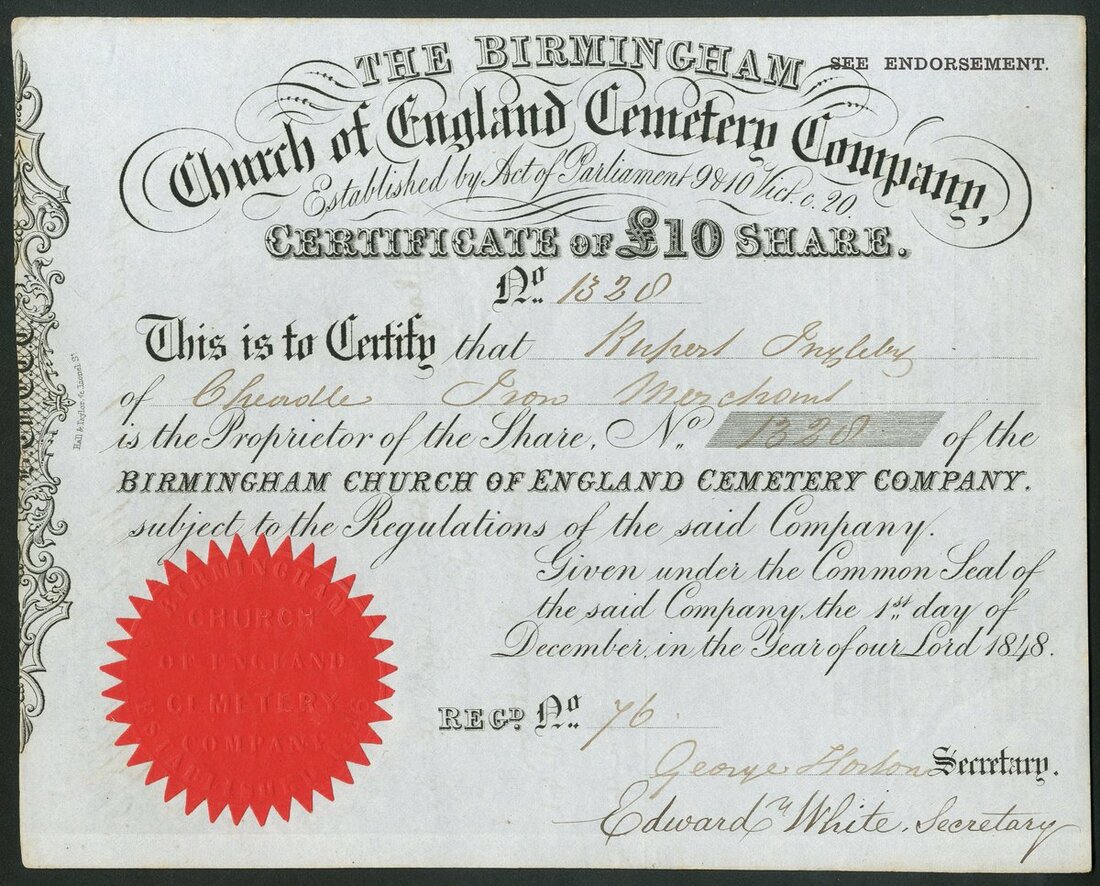 SEE ENDORSEMENT.
THE BIRMINGHAM
Church of England Cemetery Company,
Established by Act of Parliament 9 & 10 Vict. c. 20.
CERTIFICATE OF £10 SHARE.
No. 1328
This is to Certify that Rupert Ingleby
of Cheadle Iron Merchant
is the Proprietor of the Share, No. 1328 of the
BIRMINGHAM CHURCH OF ENGLAND CEMETERY COMPANY.
subject to the Regulations of the said Company.
Given under the Common Seal of
the said Company, the 1st day of
December, in the Year of our Lord 1848.
REGD. No. 76
George Horton Secretary.
Edward White, Secretary
BIRMINGHAM
CHURCH
OF ENGLAND
CEMETERY
COMPANY
ESTABLISHED
Hall & Taylor